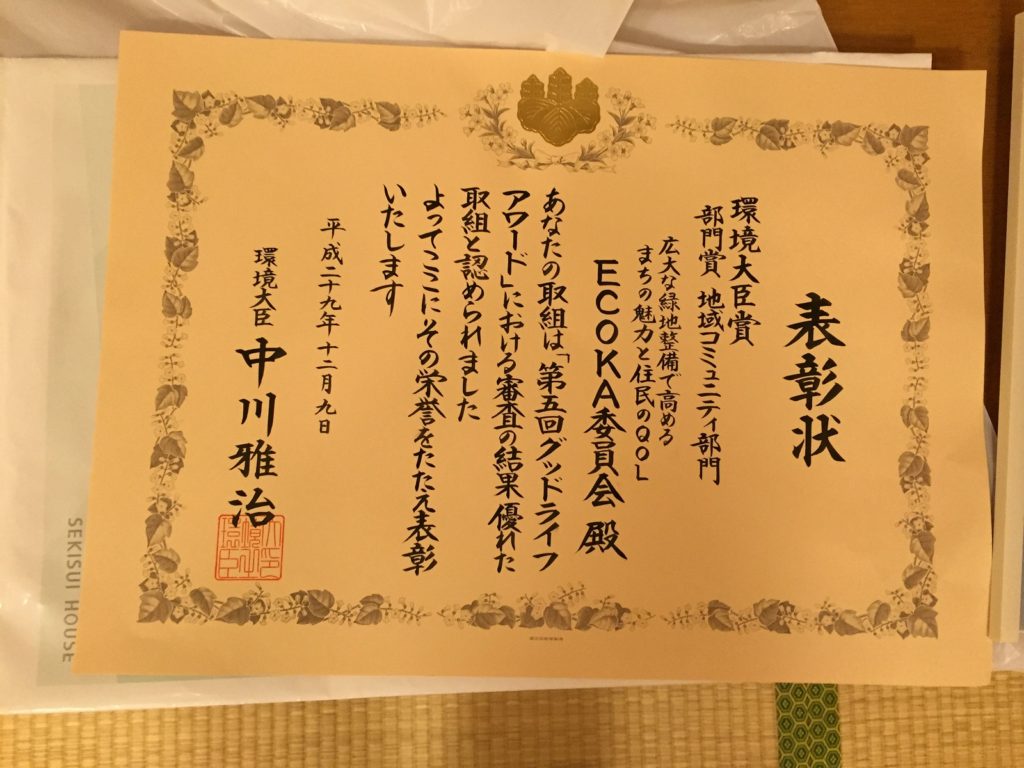 表彰状
環境大臣賞
部門賞 地域コミュニティ部門
広大な緑地整備で高める
まちの魅力と住民のQOL
ECOKA委員会 殿
あなたの取組は「第五回グッドライフ
アワード」における審査の結果優れた
取組と認められました
よってここにその栄誉をたたえ表彰
いたします
平成二十九年十二月九日
環境大臣 中川雅治
SEKISUI HOUSE